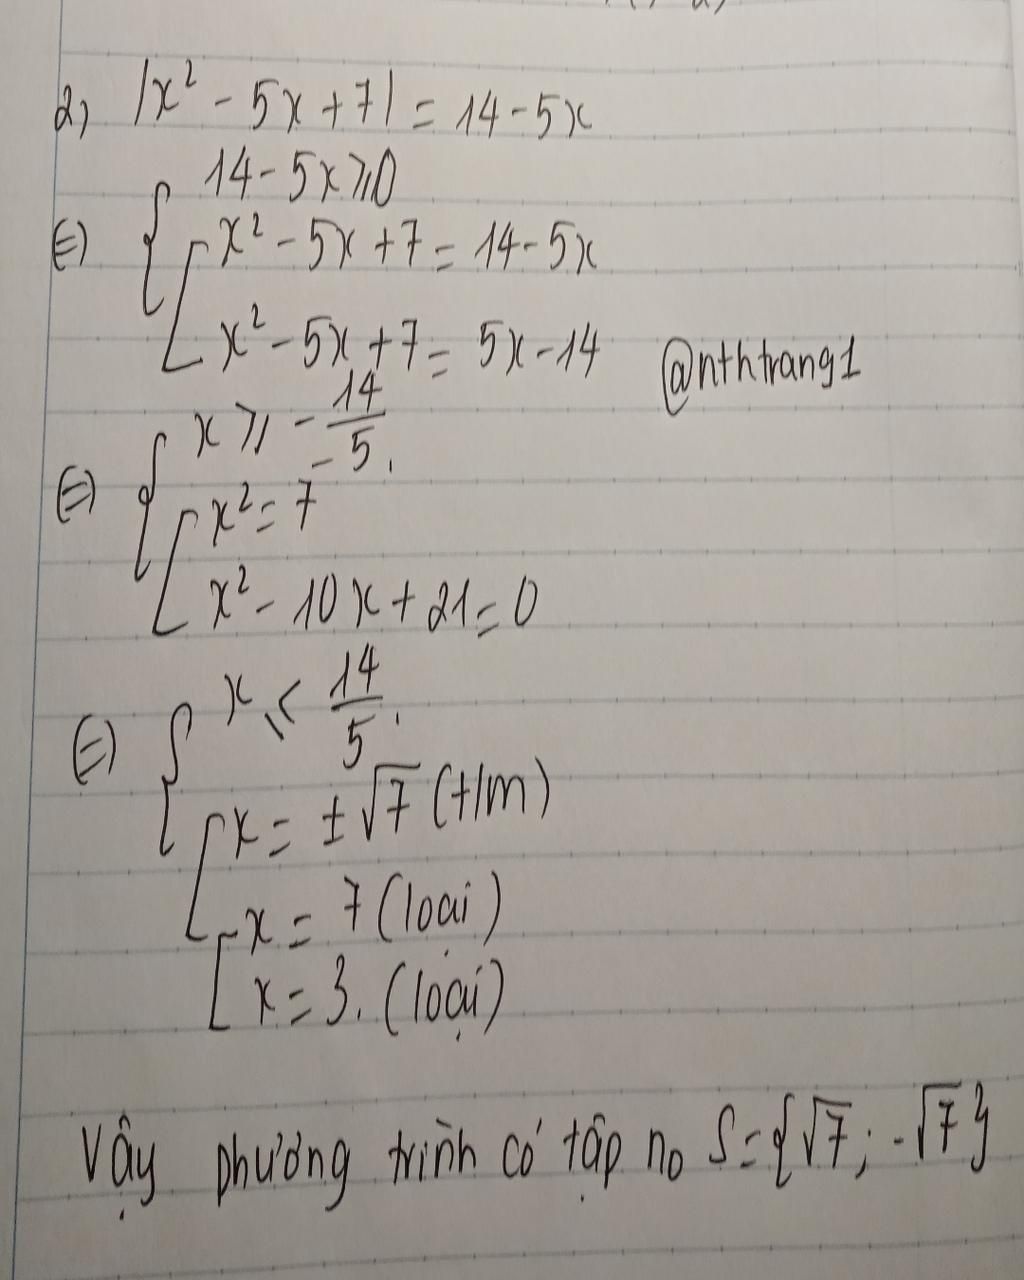 2, |x² - 5x + 7| = 14 - 5x
14 - 5x ⩾ 0
⇔ { [ x² - 5x + 7 = 14 - 5x
x² - 5x + 7 = 5x - 14
@nthtrang1
x ⩾ -14/-5.
⇔ { [ x² = 7
x² - 10x + 21 = 0
⇔ { x ⩽ 14/5.
[ x = ±√7 (t/m)
[ x = 7 (loại)
x = 3. (loại)
Vậy phương trình có tập no S = {√7; -√7}